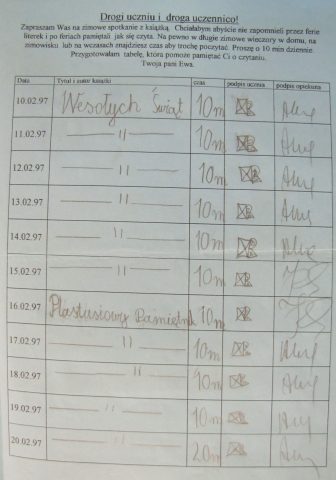 Drogi uczniu i droga uczennico!
Zapraszam Was na zimowe spotkanie z książką. Chciałabym abyście nie zapomnieli przez ferie
literek i po feriach pamiętali jak się czyta. Na pewno w długie zimowe wieczory w domu, na
zimowisku lub na wczasach znajdziesz czas aby trochę poczytać. Proszę o 10 min dziennie.
Przygotowałam tabelę, która pomoże pamiętać Ci o czytaniu.
Twoja pani Ewa.
Data Tytuł i autor książki czas podpis ucznia podpis opiekuna
10.02.97 Wesołych Świąt 10m
11.02.97 — 11 — 10m
12.02.97 — 11 — 10m
13.02.97 — 11 — 10m
14.02.97 — 11 — 10m
15.02.97 — 11 — 10m
16.02.97 Plastusiowy Pamiętnik 10m
17.02.97 — 11 — 10m
18.02.97 — 11 — 10m
19.02.97 — 11 — 10m
20.02.97 — 11 — 20m